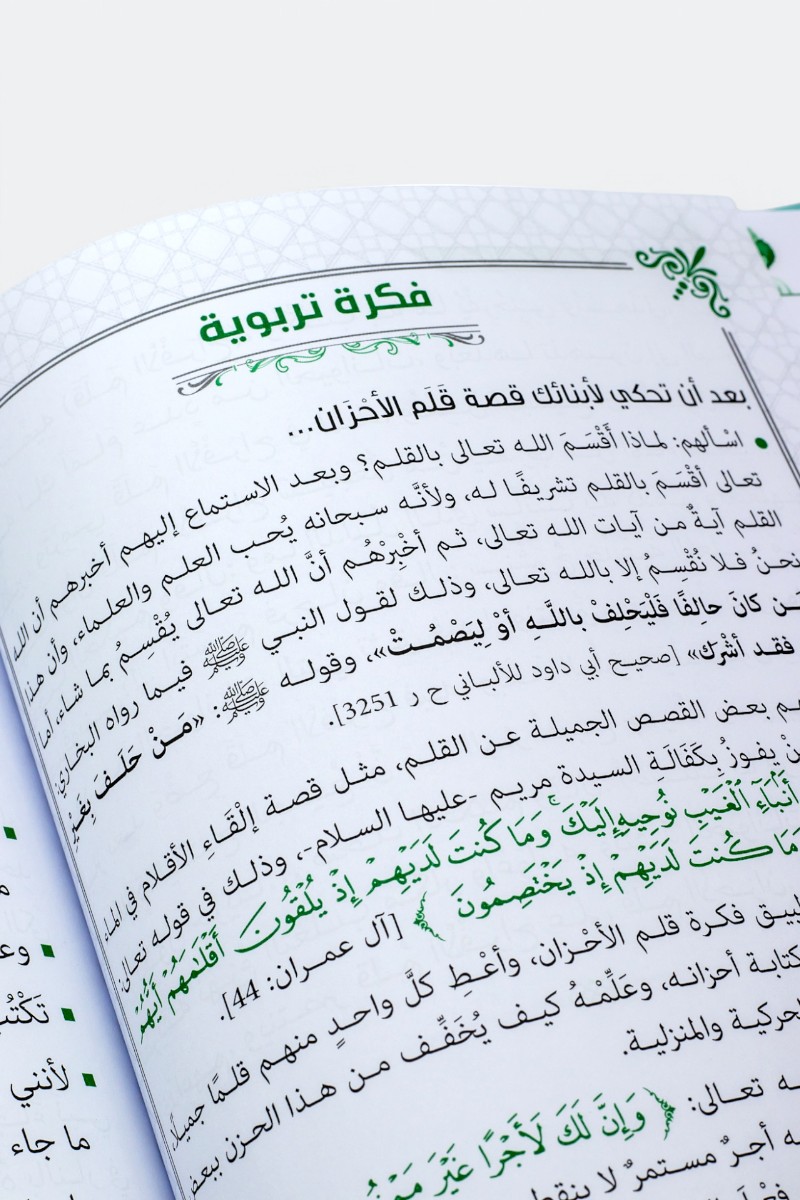 فكرة تربوية
بعد أن تحكي لأبنائك قصة قَلَم الأحْزَان...
● اسْألهم: لماذا أَقْسَمَ الله تعالى بالقلم؟ وبعد الاستماع إليهم أخبرهم أن الله
تعالى أقْسَمَ بالقلم تشريفًا له، ولأنَّه سبحانه يُحب العلم والعلماء، وأن هذا
القلم آيةٌ من آيات الله تعالى، ثم أخْبِرْهُم أنَّ الله تعالى يُقْسِمُ بما شاء، أما
نحنُ فلا نُقْسِمُ إلا بالله تعالى، وذلك لقول النبي ﷺ فيما رواه البخاري:
كانَ حالِفًا فَلْيَحْلِفْ باللَّهِ أوْ لِيَصْمُتْ»، وقوله ﷺ: «مَنْ حَلَفَ بِغَيْرِ
فقد أشْرك» [صحيح أبي داود للألباني ح ر 3251].
بعض القصص الجميلة عن القلم، مثل قصة إلْقَاءِ الأقلام في الماء
يفوزُ بِكَفَالَةِ السيدة مريم -عليها السلام-، وذلك في قوله تعالى:
أَنۢبَآءِ ٱلۡغَيۡبِ نُوحِيهِ إِلَيۡكَۚ وَمَا كُنتَ لَدَيۡهِمۡ إِذۡ يُلۡقُونَ أَقۡلَٰمَهُمۡ أَيُّهُمۡ
مَا كُنتَ لَدَيۡهِمۡ إِذۡ يَخۡتَصِمُونَ ﴾ [آل عمران: 44].
فكرة قلم الأحْزان، وأعْطِ كلَّ واحدٍ منهم قلمًا جميلًا
كتابة أحزانه، وعَلِّمْهُ كيف يُخَفِّف من هذا الحزن ببعض
الحركية والمنزلية.
تعالى: ﴿ وَإِنَّ لَكَ لَأَجۡرًا غَيۡرَ
أجرٌ مستمرٌ لا
■
■ وعـ
■
■ لأنني
ما جاء